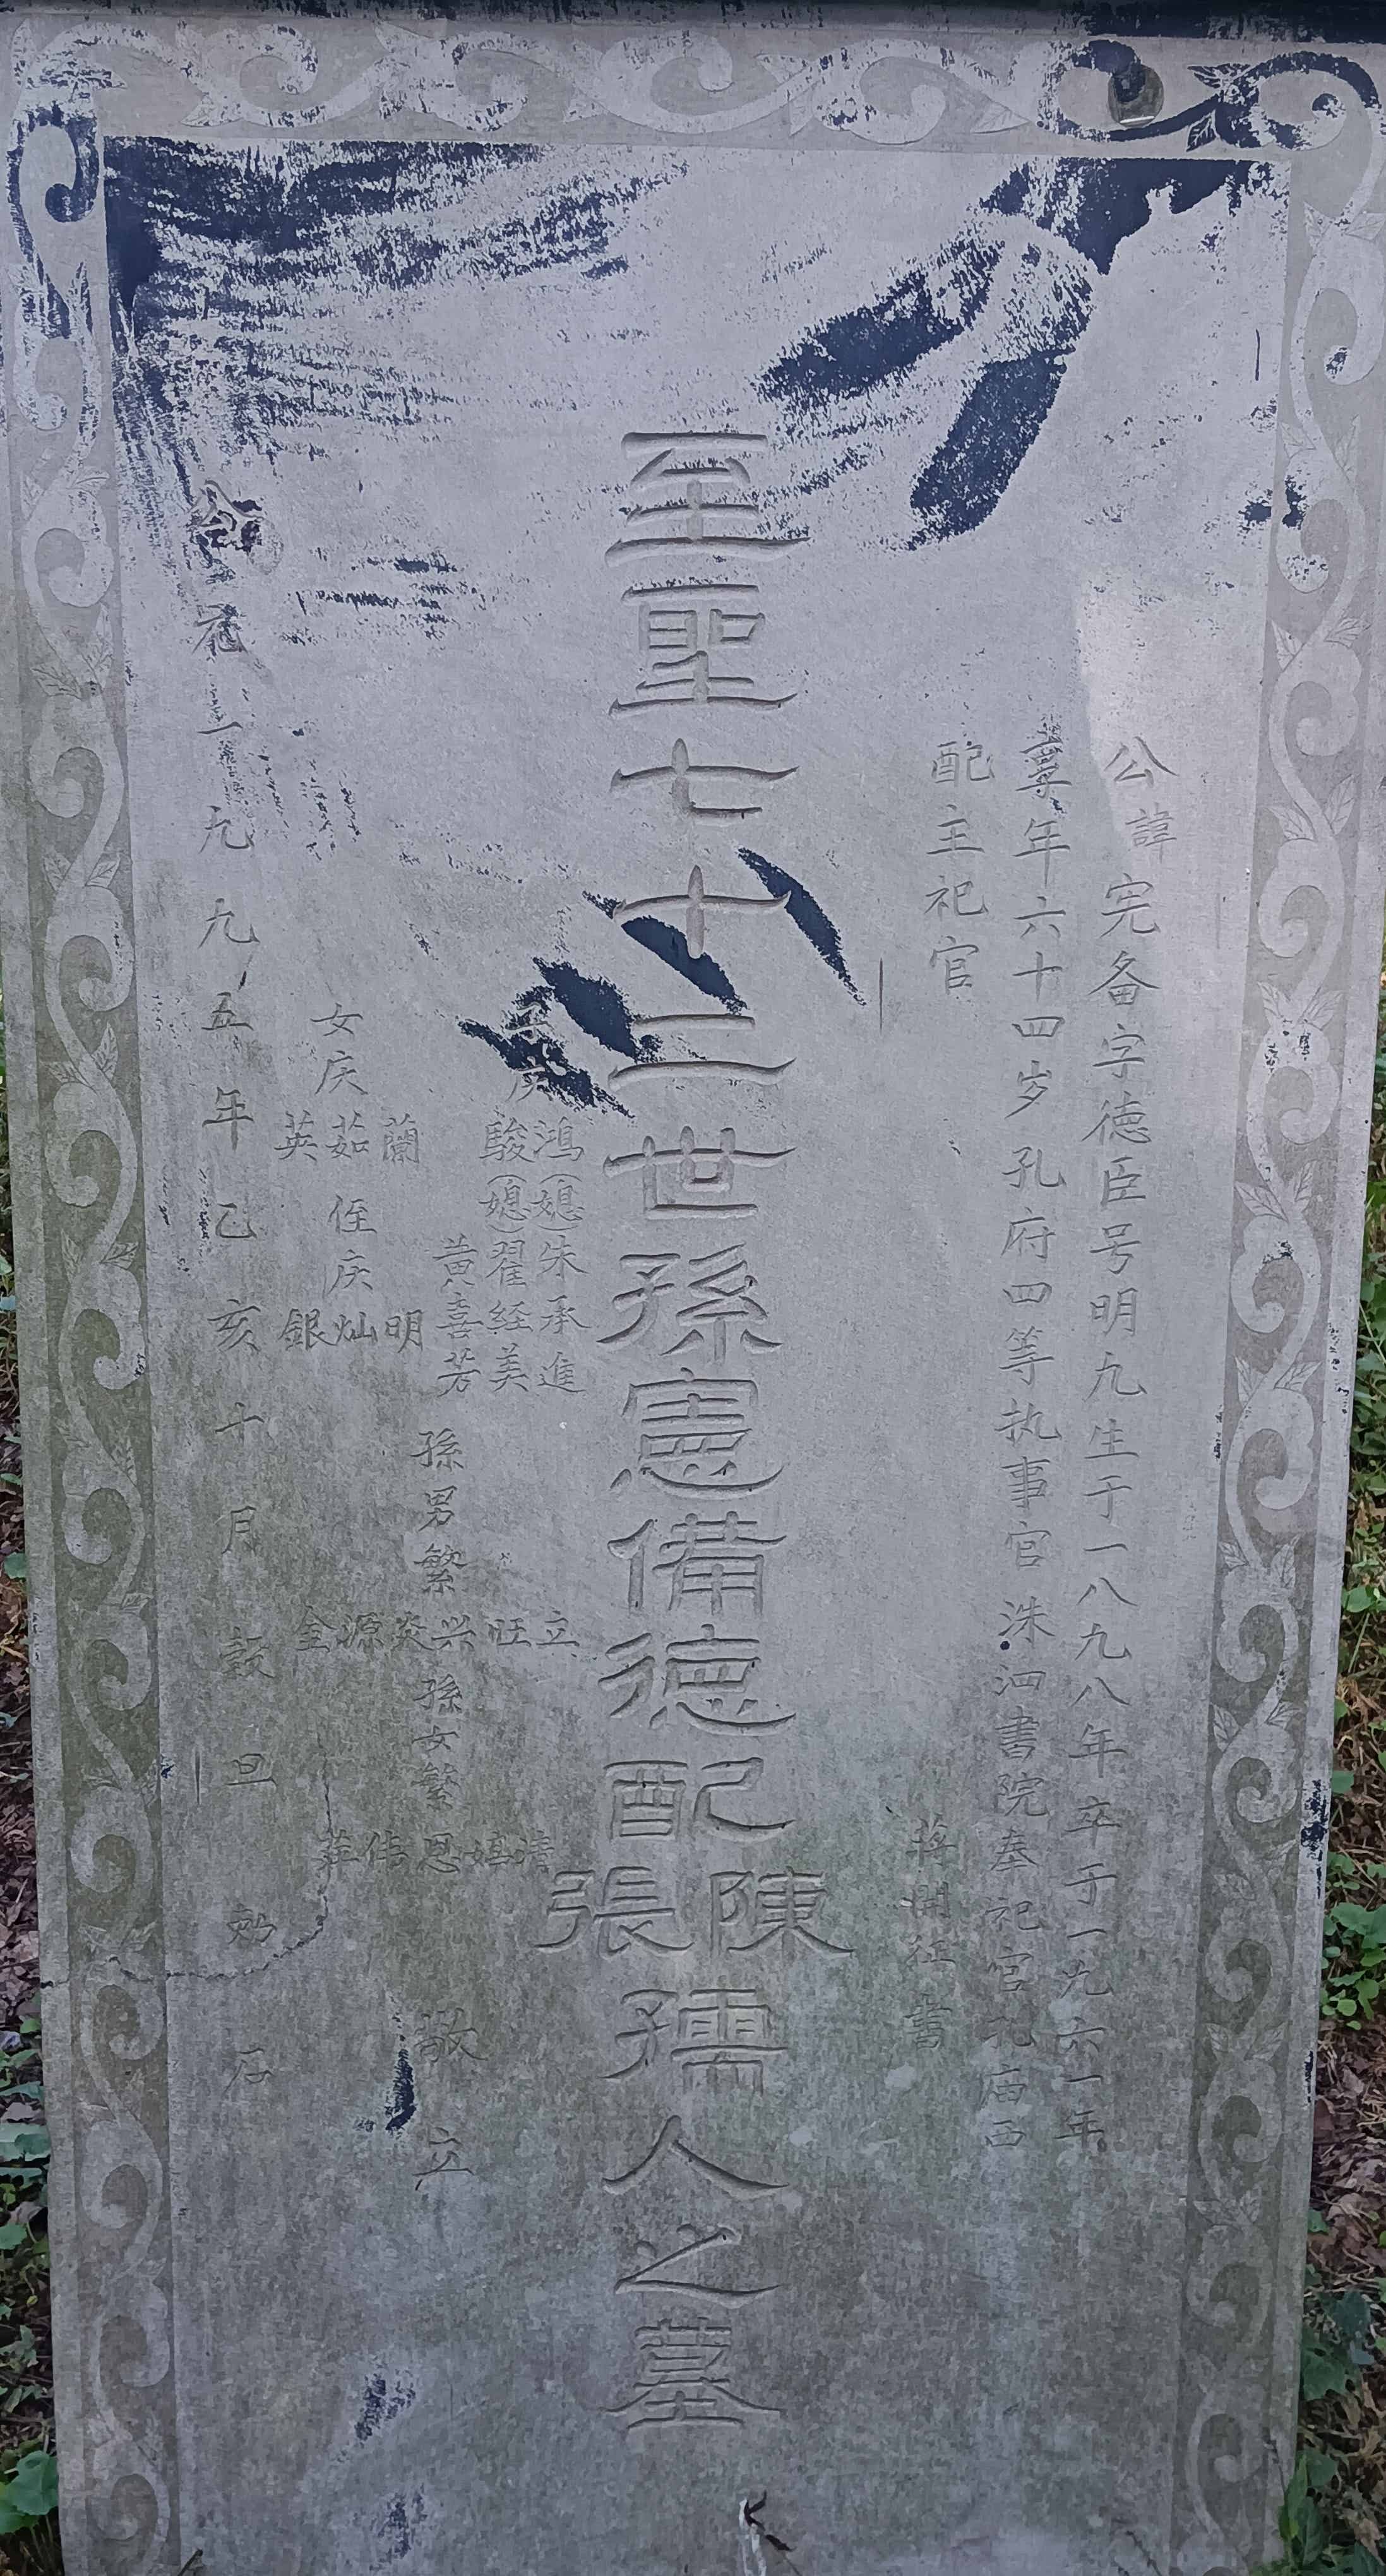 公諱宪备字徳臣号明九生于一八九八年卒于一九六一年
享年六十四岁孔府四等执事官洙泗書院奉祀官孔庙西
配主祀官
書
至聖七十二世孫憲備德配陳張孺人之墓
子庆
鸿(媳)朱承進
駿(媳)翟经美
黄喜芳
孫男繁
立旺兴炎源金
孫女繁
恩伟萍
敬立
女庆
蘭茹英
侄庆
明灿銀
一九九五年乙亥十月穀旦勒石